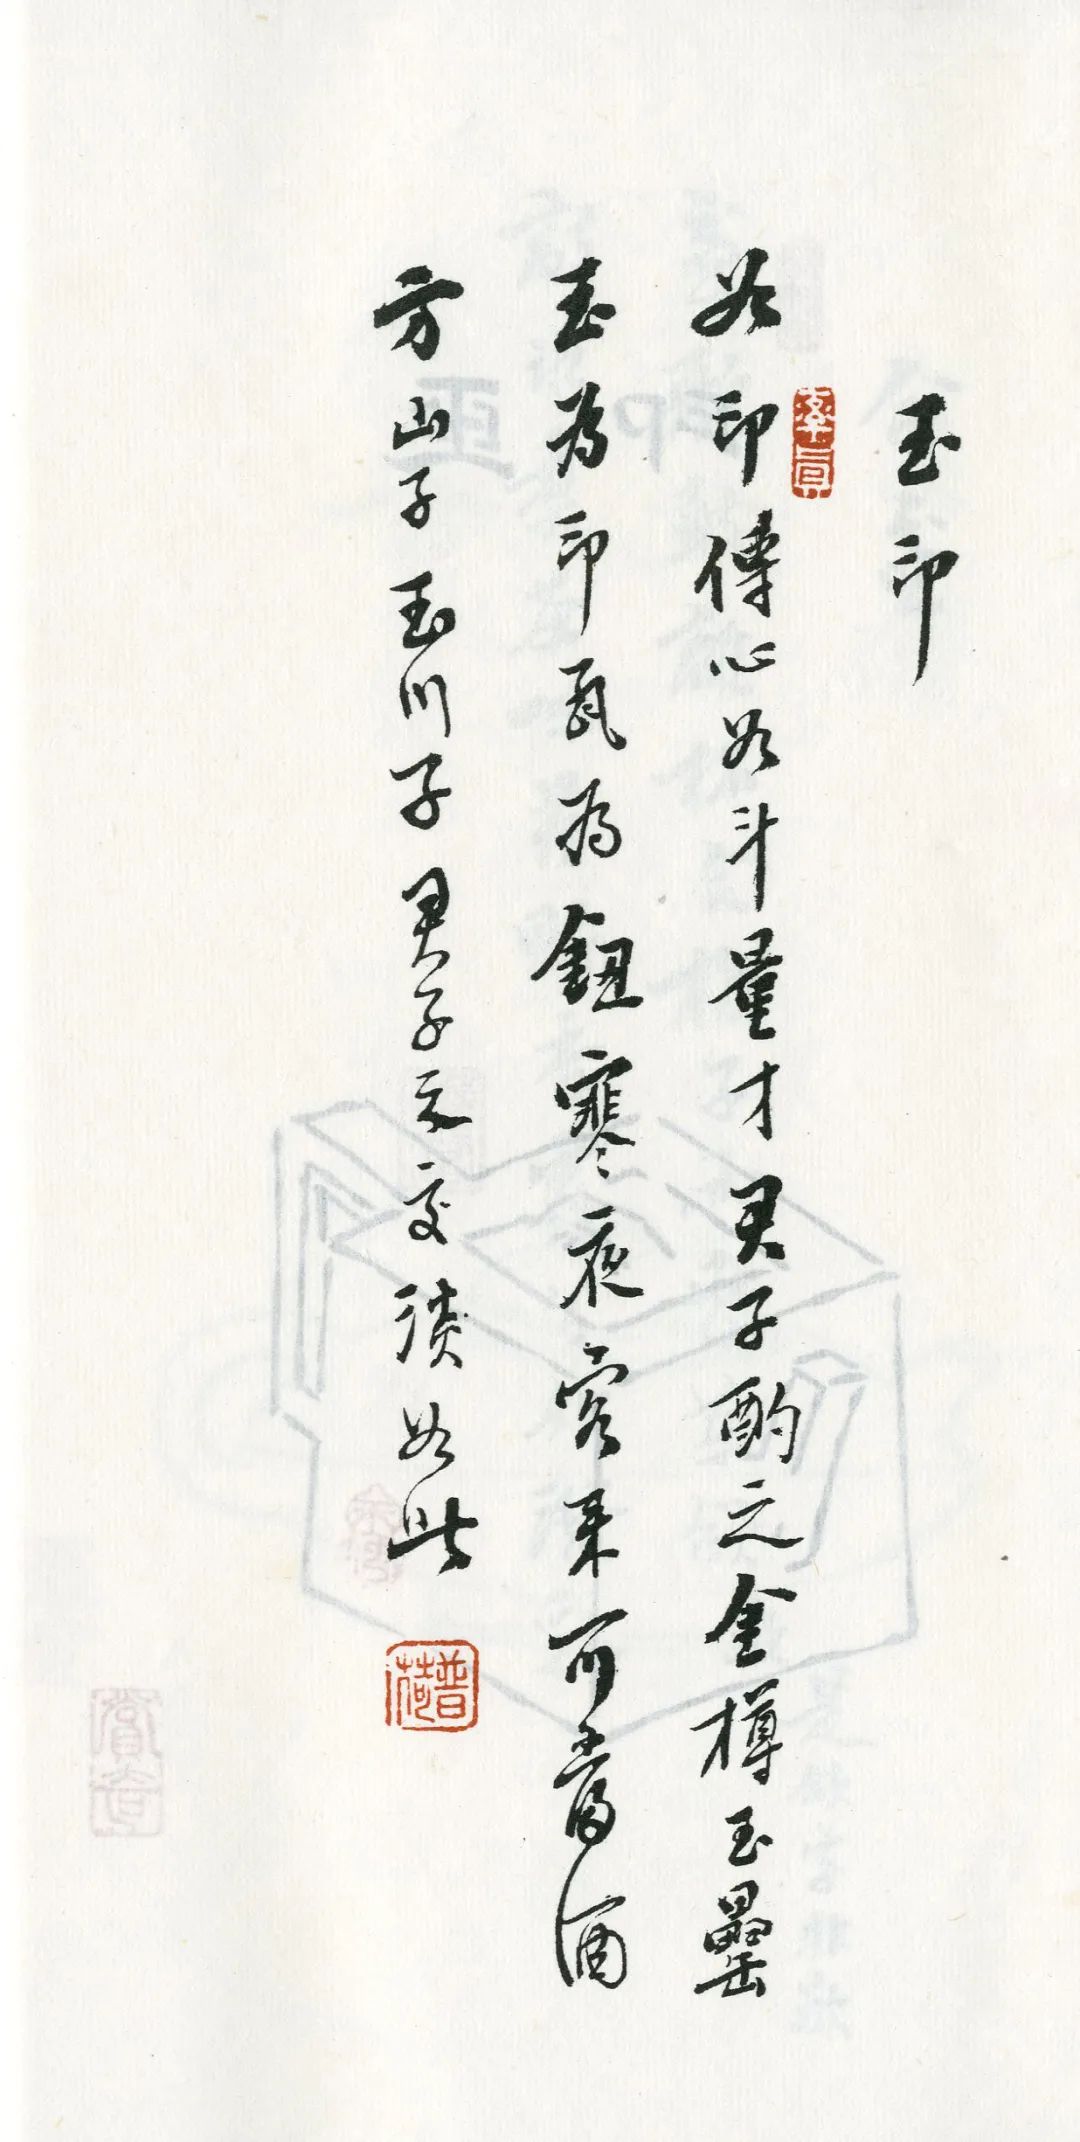 玉印
如印傳心如斗量才君子酌之金樽玉罍
玉為印瓦為鈕寒夜客來可當酒
方山子玉川子君子之交淡如此